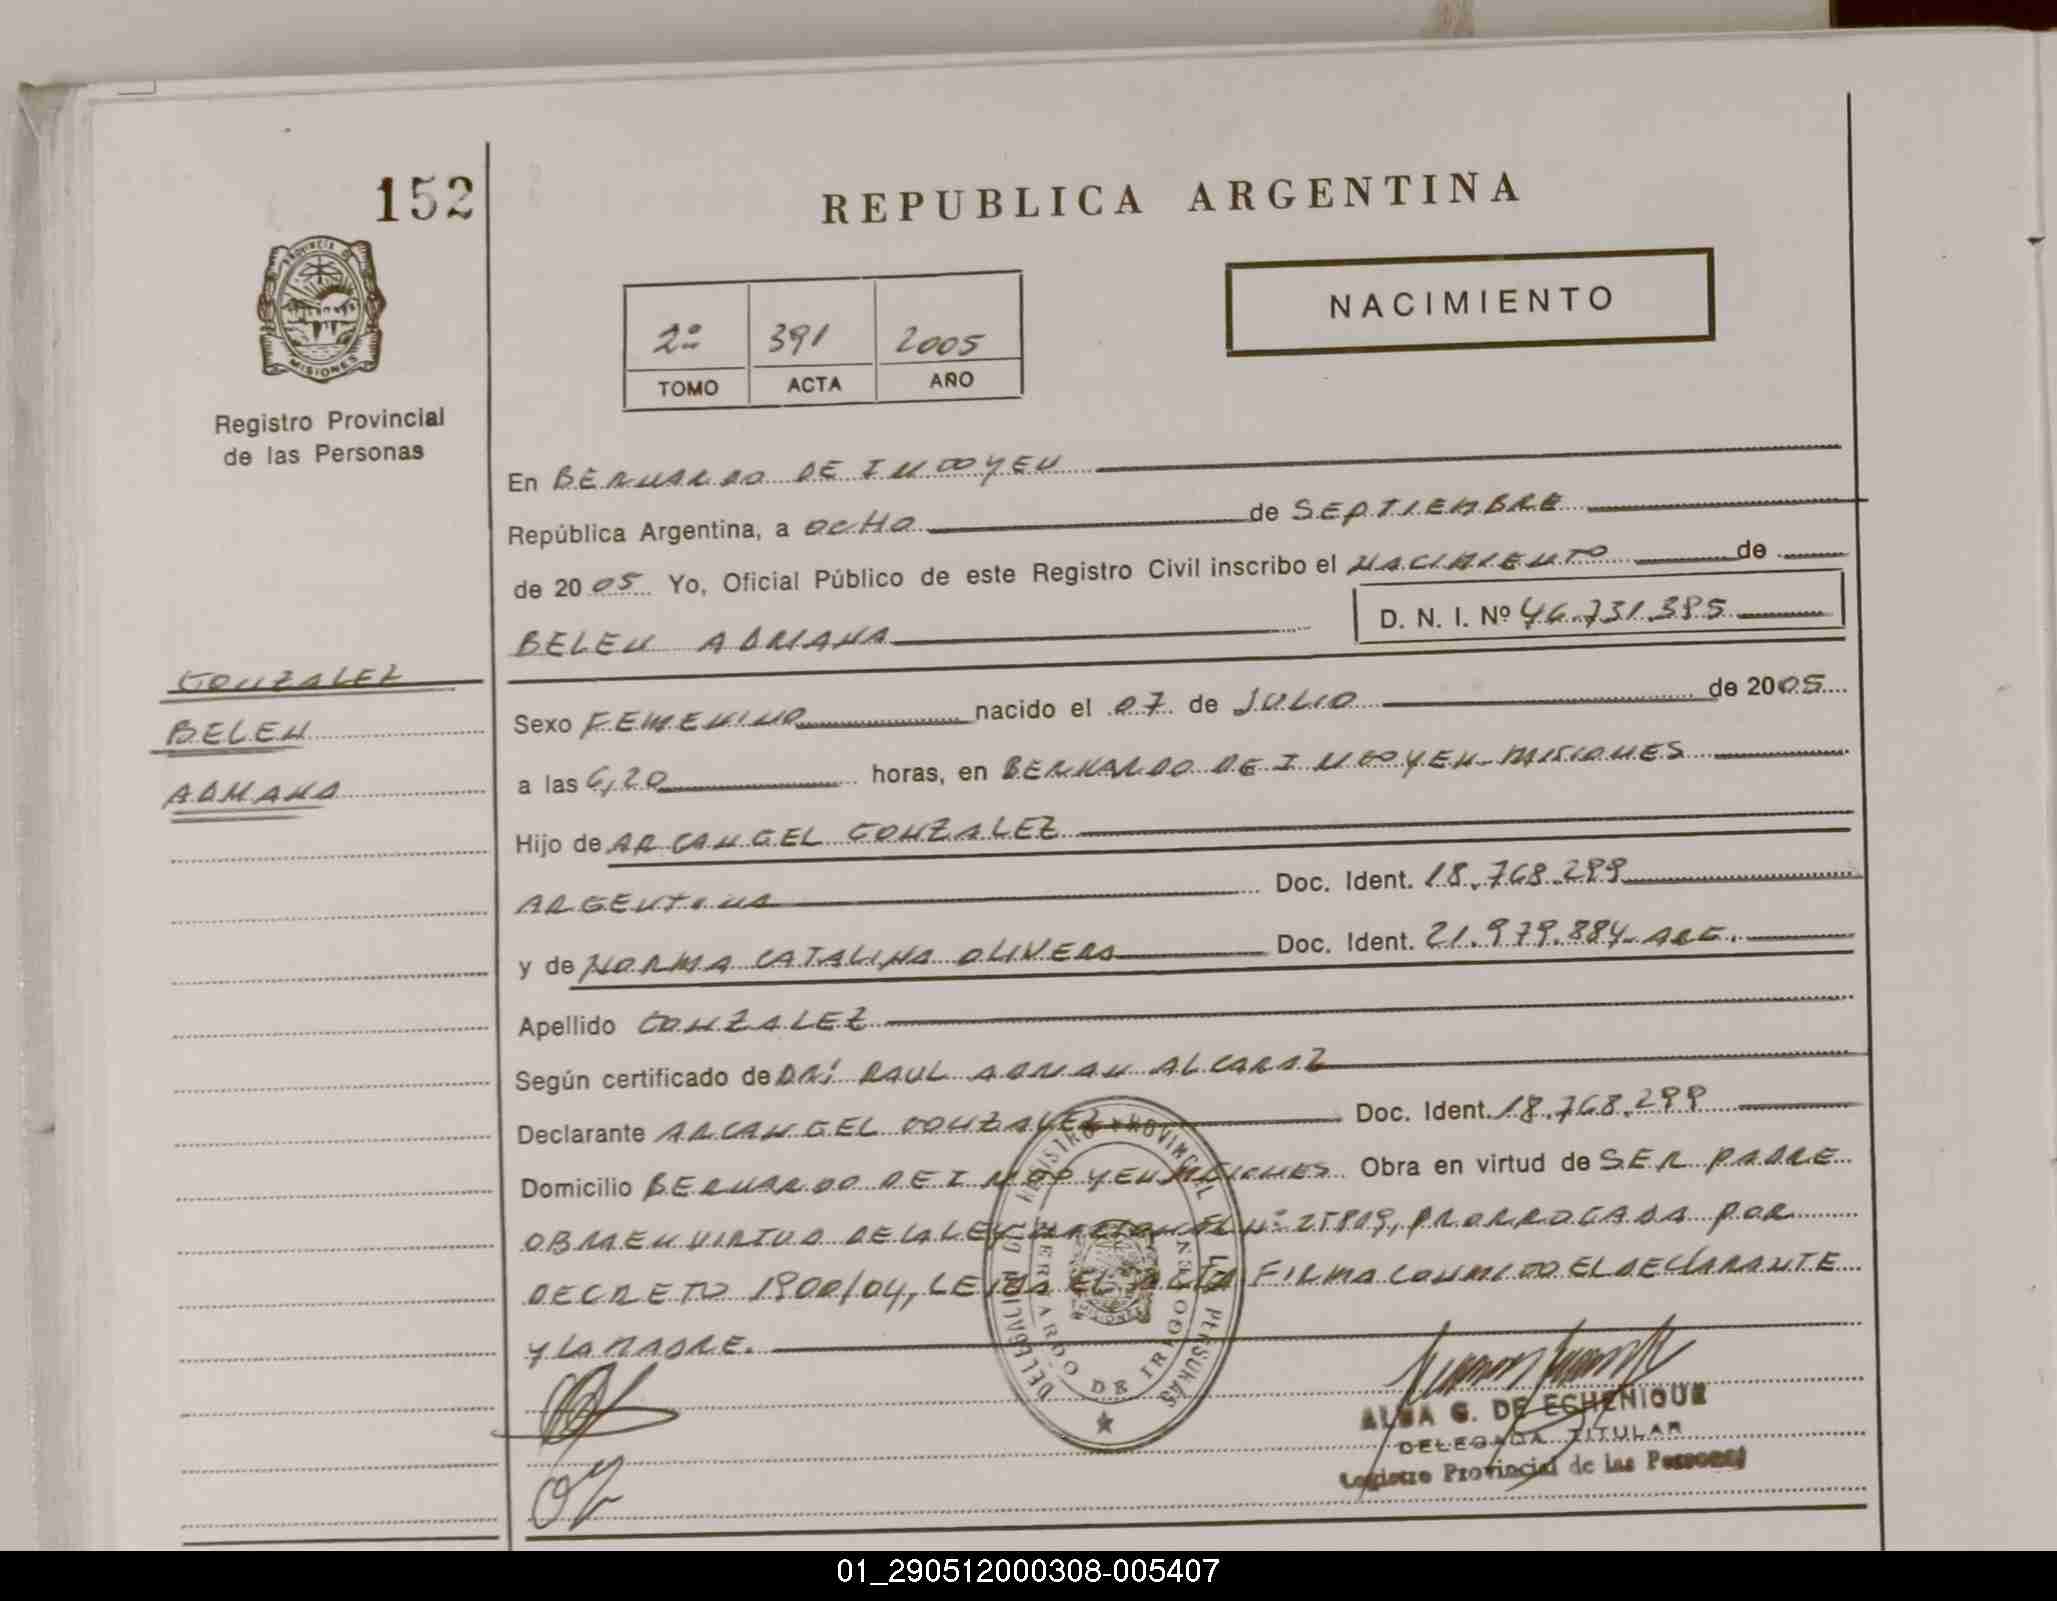 152
REPUBLICA ARGENTINA
PROVINCIA DE
MISIONES
Registro Provincial
de las Personas
2º 391 2005
TOMO ACTA AÑO
NACIMIENTO
En BERNARDO DE IRIGOYEN
República Argentina, a OCHO de SEPTIEMBRE
de 2005 Yo, Oficial Público de este Registro Civil inscribo el NACIMIENTO de
BELEN ADRIANA D. N. I. Nº 46.731.395
GONZALEZ
BELEN
ADRIANA
Sexo FEMENINO nacido el 07 de JULIO de 2005
a las 6,20 horas, en BERNARDO DE IRIGOYEN-MISIONES
Hijo de ARCANGEL GONZALEZ
ARGENTINA Doc. Ident. 18.768.299
y de NORMA CATALINA OLIVERA Doc. Ident. 21.979.884-ARG.
Apellido GONZALEZ
Según certificado de DR: RAUL ADRIAN ALCARAZ
Declarante ARCANGEL GONZALEZ Doc. Ident. 18.768.299
Domicilio BERNARDO DE IRIGOYEN MISIONES Obra en virtud de SER PADRE
OBRA EN VIRTUD DE LA LEY NACIONAL Nº 25819, PRORROGADA POR
DECRETO 1900/04, LEIDA EL ACTA FIRMA CONMIGO EL DECLARANTE
Y LA MADRE.
DELEGACION DEL REGISTRO PROVINCIAL DE LAS PERSONAS
BERNARDO DE IRIGOYEN
ALBA G. DE ECHENIQUE
DELEGADA TITULAR
Registro Provincial de las Personas
01_290512000308-005407